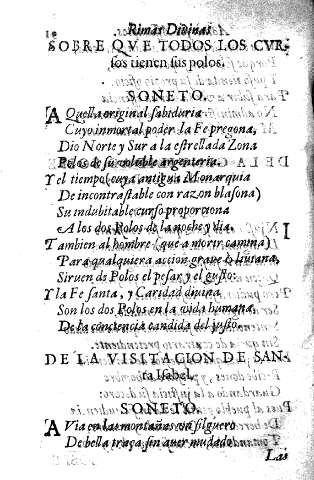 Rimas Diuinas
SOBRE QVE TODOS LOS CVR-
sos tienen sus polos.
SONETO.
AQuella original sabiduria
Cuyo inmortal poder la Fe pregona,
Dio Norte y Sur a la estrellada Zona
Polos de su voluble argenteria.
Y el tiempo (cuya antigua Monarquia
De incontrastable con razon blasona)
Su indubitable curso proporciona
A los dos Polos de la noche y dia.
Tambien al hombre (que a morir camina)
Para qualquiera accion graue o liuiana,
Siruen de Polos el pesar y el gusto:
Y la Fe santa, y Caridad diuina
Son los dos Polos en la vida humana,
De la conciencia candida del justo.
DE LA VISITACION DE SAN-
ta Isabel.
SONETO.
AVia en las montañas vn silguero
De bella traça sin auer mudado
Las